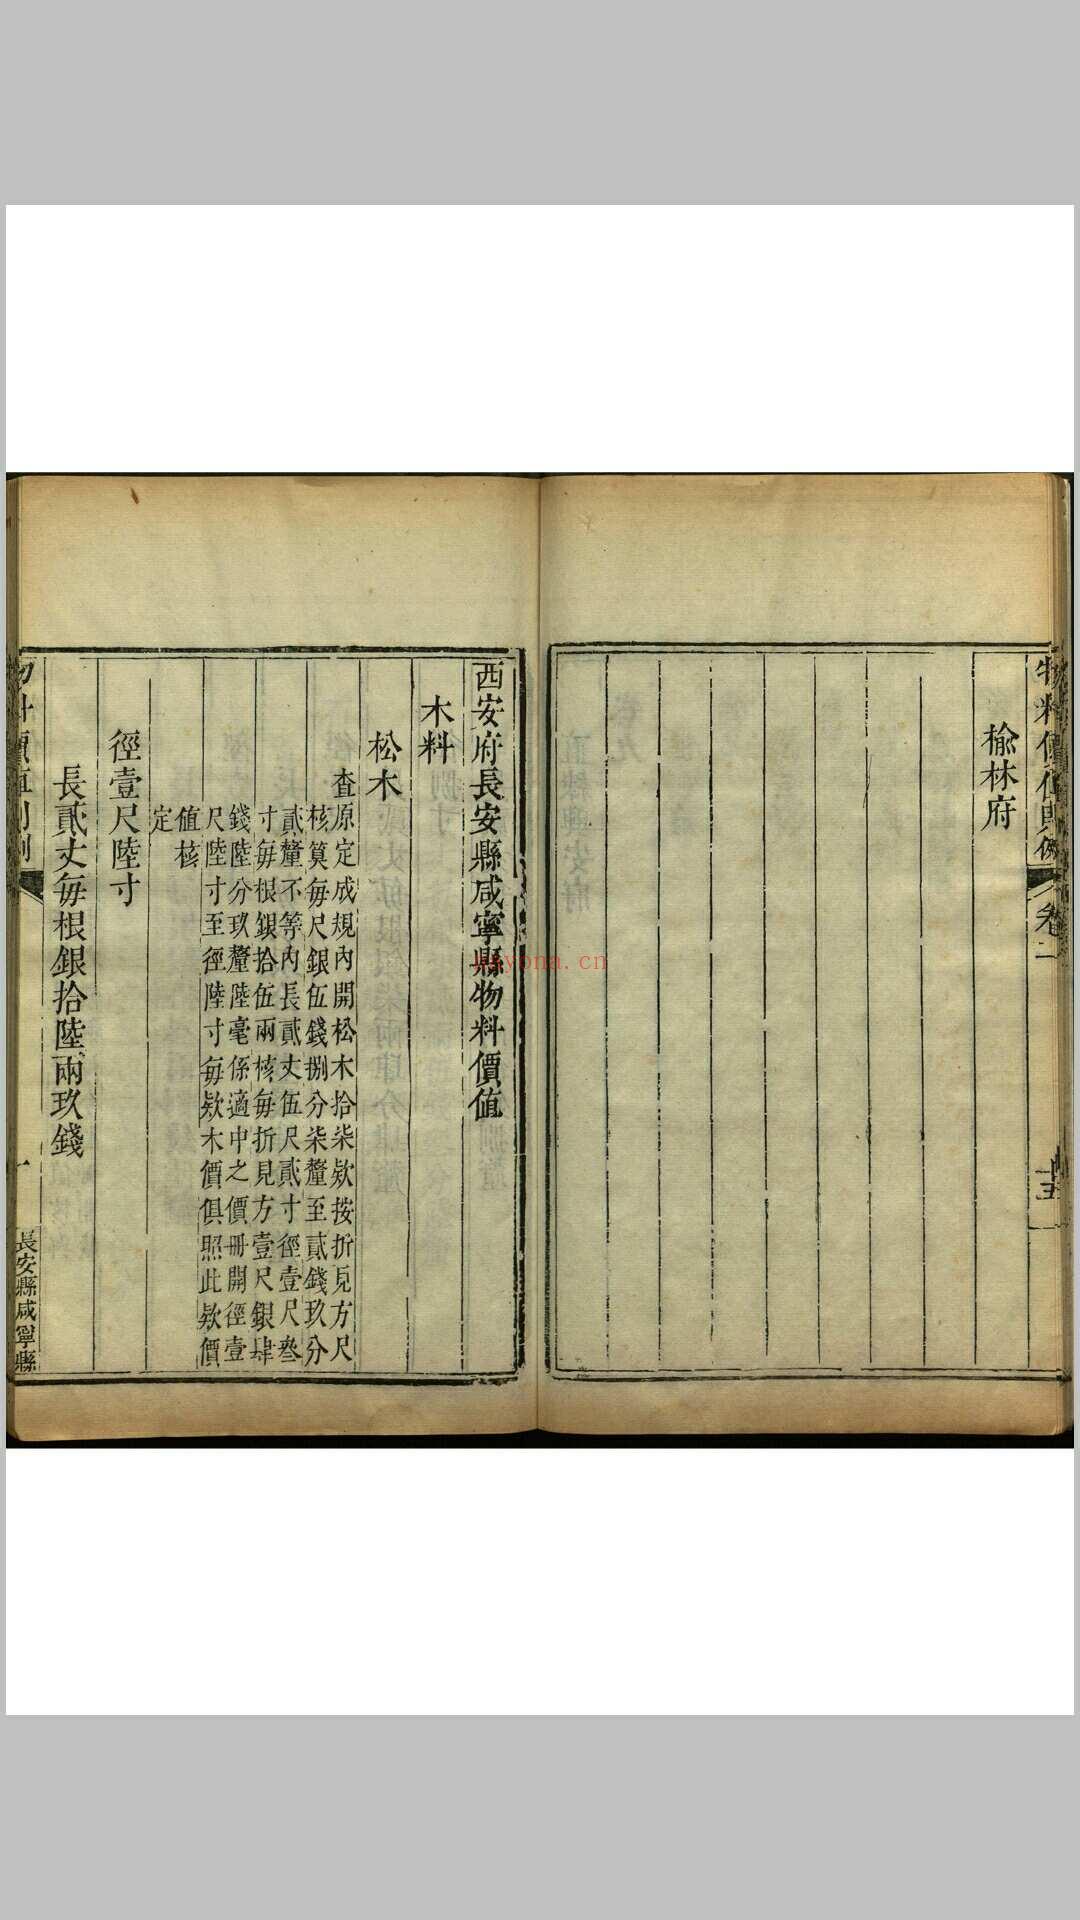 物料價值則例 卷二
榆林府
西安府長安縣咸寧縣物料價值
木料
松木
查原定成規內開松木拾柒欵按折見方尺
核算每尺銀伍錢捌分柒釐至貳錢玖分
貳釐不等內長貳丈伍尺貳寸徑壹尺叁
寸每根銀拾伍兩核每折見方壹尺銀肆
錢陸分玖釐陸毫係適中之價冊開徑壹
尺陸寸至徑陸寸每欵木價俱照此欵價
值核
定
徑壹尺陸寸
長貳丈每根銀拾陸兩玖錢
長安縣咸寧縣
haiyona.cn